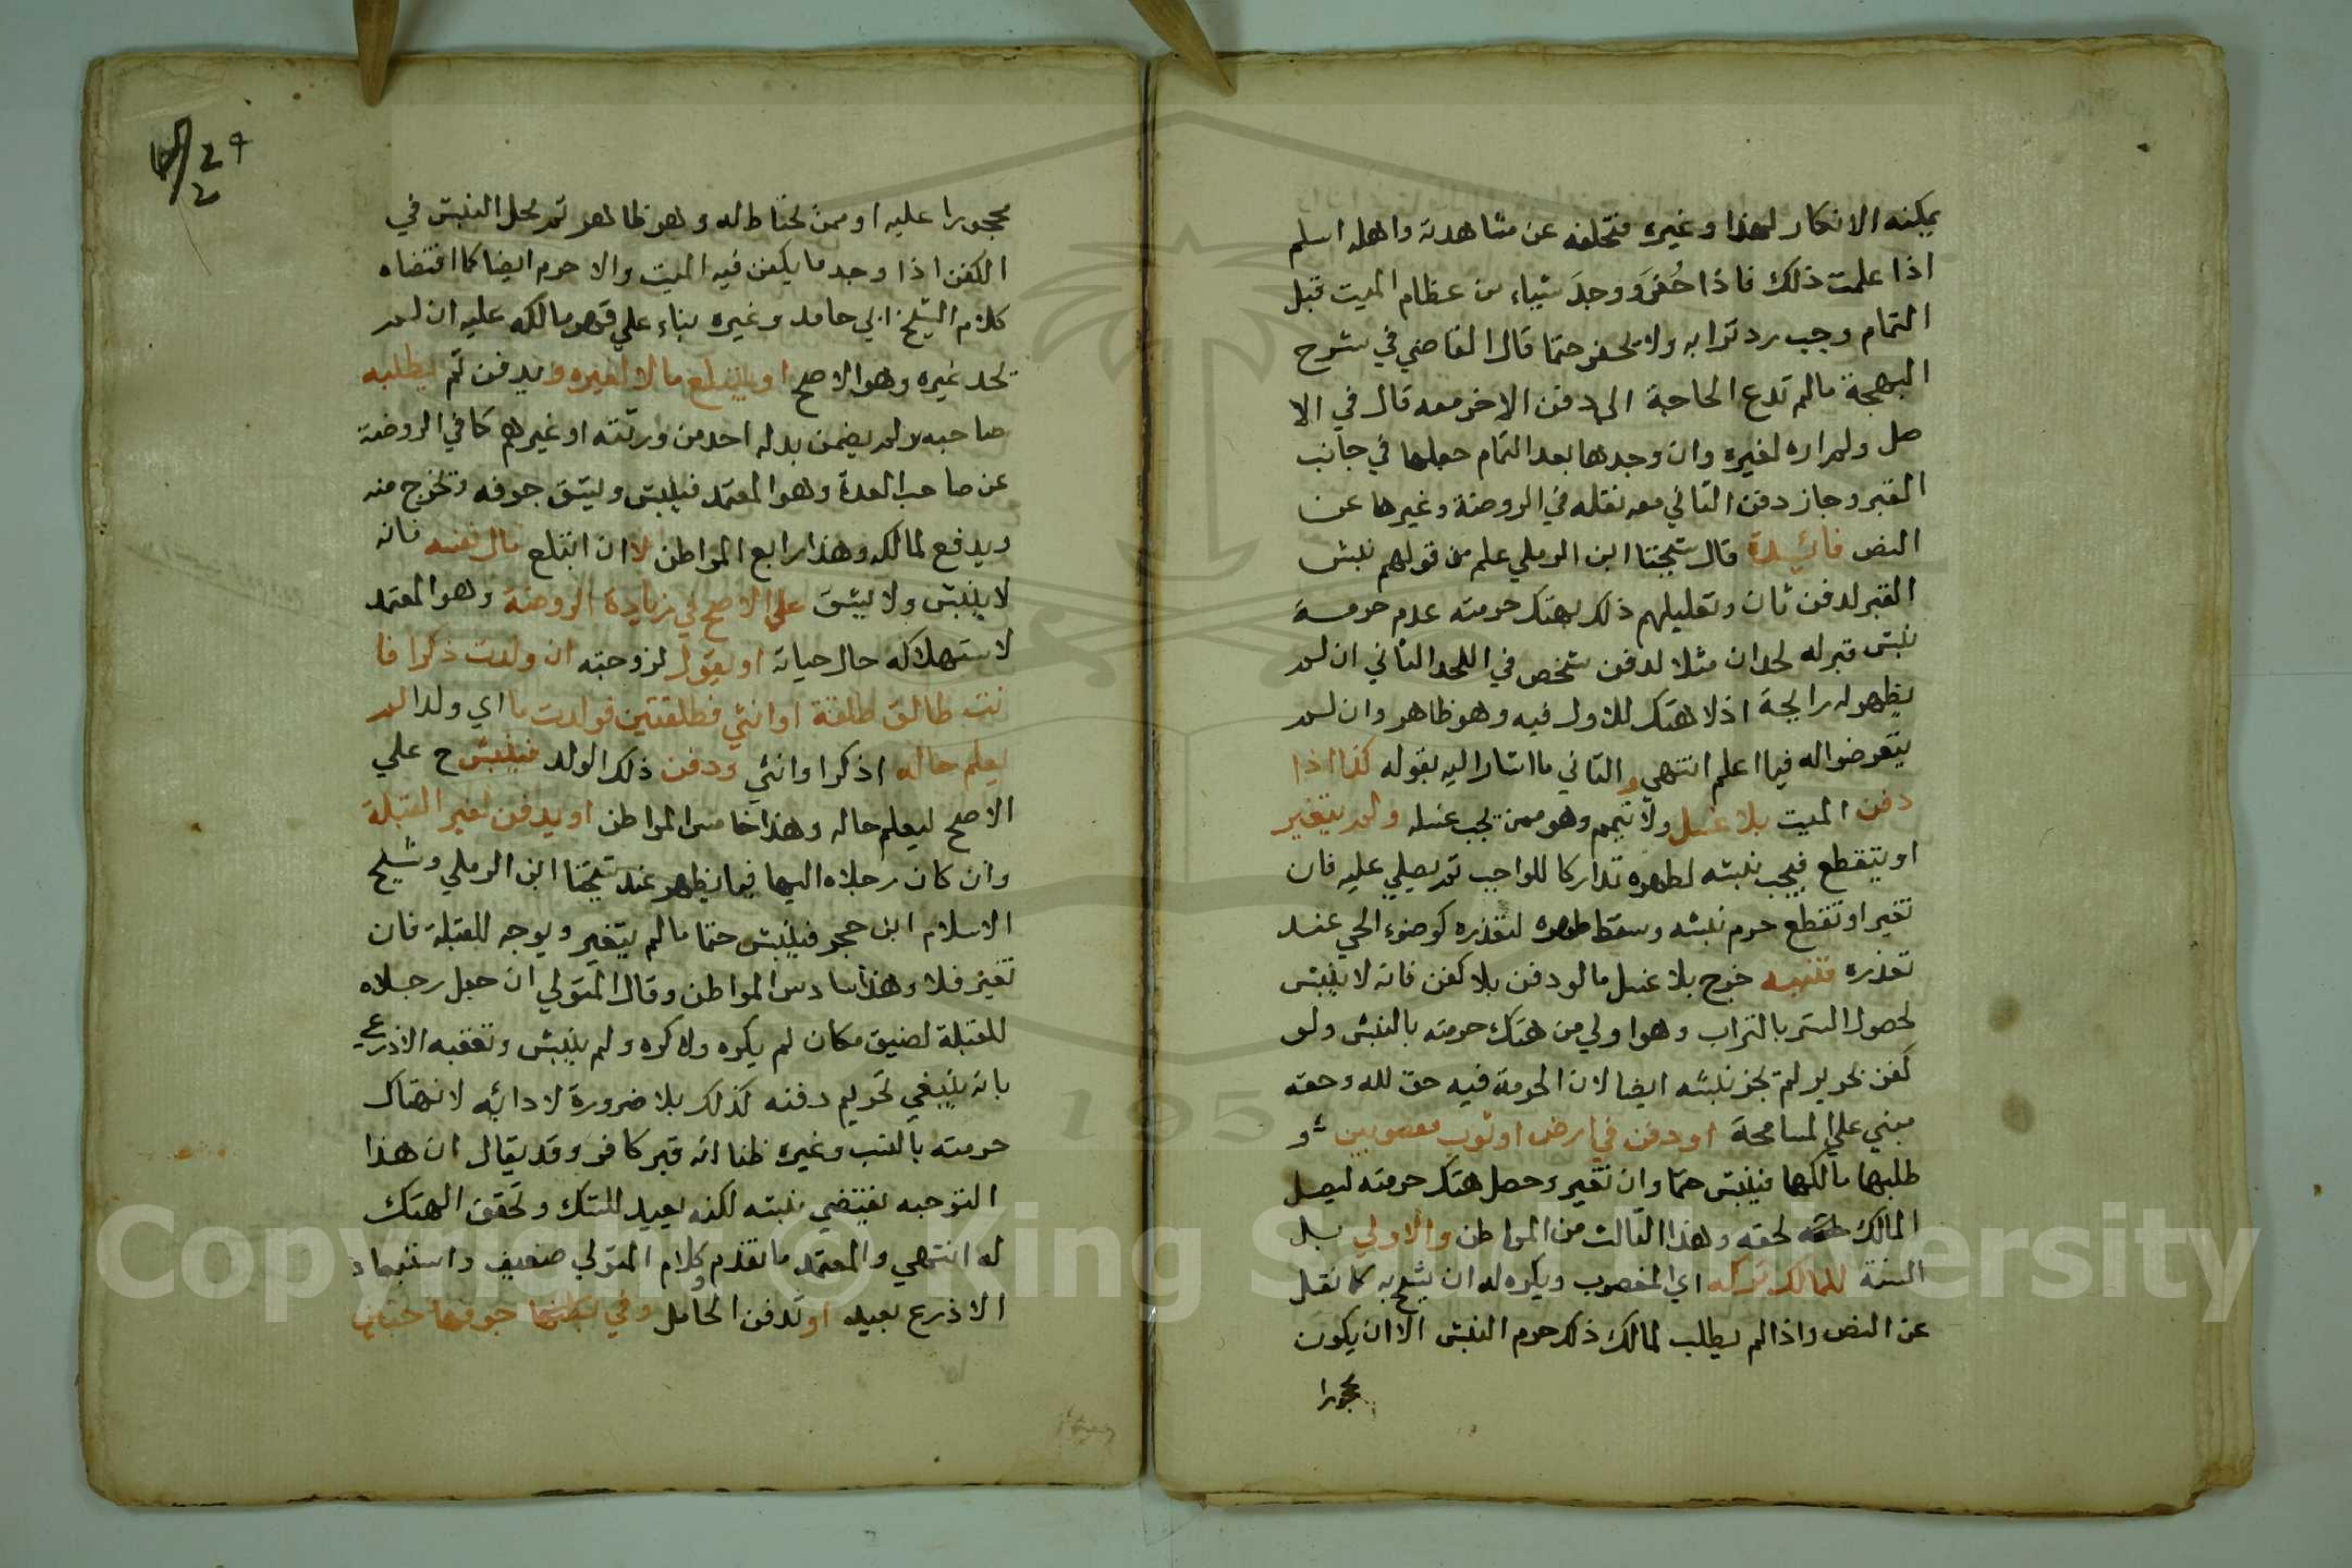 يمكنه الانكار لهذا وغيره فتخلفه عن مشاهدته واهله اسلم
اذا علمت ذلك فاذا حُفرَ ووجدَ شياء من عظام الميت قبل
التمام وجب رد ترابه ولا يحفر حتما قال القاضي في شرح
البهجة مالم تدع الحاجة الى دفن الاخر معه قال في الا
صل ولم اره لغيره وان وجدها بعد التمام جعلها في جانب
القبر وجاز دفن الثاني معه نقله في الروضة وغيرها عن
النص فائيدة قال شيخنا ابن الرملي علم من قولهم نبش
القبر لدفن ثان وتعليلهم ذلك بهتك حرمته عدم حرمة
نبش قبر له لحدان مثلا لدفن شخص في اللحد الثاني ان لم
يظهر له رايحة اذ لا هتك للاول فيه وهو ظاهر وان لم
يتعرضوا له فيما اعلم انتهي و الثاني ما اشار اليه بقوله كما اذا
دفن الميت بلا غسل ولا تيمم وهو ممن يجب غسله ولم يتغير
او يتقطع فيجب نبشه لطهره تداركا للواجب ثم يصلي عليه فان
تغير او تقطع حرم نبشه وسقط طهره لتعذره كوضوء الحي عند
تعذره تنبيه خرج بلا غسل ما لو دفن بلا كفن فانه لا ينبش
لحصول الستر بالتراب وهو اولي من هتك حرمته بالنبش ولو
كفن بحرير لم يجز نبشه ايضا لان الحرمة فيه حق لله وحقه
مبني علي المسامحة او دفن في ارض او ثوب مغصوبين و
طلبها مالكها فينبش حتما وان تغير وحصل هتك حرمته ليصل
المالك لحقه وهذا الثالث من المواطن والاولي بل
السنة للمالك تركه اي المغصوب ويكره له ان يشح به كما نقل
عن النص واذا لم يطلب المالك ذلك حرم النبش الا ان يكون
محجورا
محجورا عليه او ممن يحتاط له وهو ظاهر ثم محل النبش في
الكفن اذا وجد ما يكفن فيه الميت والا حرم ايضا كما اقتضاه
كلام الشيخ ابي حامد وغيره بناء علي قهر مالكه عليه ان لم
نجد غيره وهو الاصح او يبتلع مالا لغيره ويدفن ثم يطلبه
صاحبه ولم يضمن بدله احد من ورثته او غيرهم كما في الروضة
عن صاحب العدة وهو المعتمد فينبش ويشق جوفه وتخرج منه
ويدفع لمالكه وهذا رابع المواطن لا ان ابتلع مال نفسه فانه
لا ينبش ولا يشق علي الاصح في زيادة الروضة وهو المعتمد
لاستهلاكه حال حياته او يقول لزوجته ان ولدت ذكرا فا
نت طالق طلقة او انثي فطلقتين فولدت ما اي ولدا لم
يعلم حاله اذكرا وانثي ودفن ذلك الولد فينبش ح علي
الاصح ليعلم حاله وهذا خامس المواطن او يدفن لغير القبلة
وان كان رجلاه اليها فيما يظهر عند شيخنا ابن الرملي وشيخ
الاسلام ابن حجر فينبش حتما ما لم يتغير ويوجه للقبلة فان
تغير فلا وهذا سادس المواطن وقال المتولي ان جعل رجلاه
للقبلة لضيق مكان لم يكره والا كره ولم ينبش وتعقبه الاذرعي
بانه ينبغي تحريم دفنه كذلك بلا ضرورة لادائه لانتهاك
حرمته بالسب وغيره ظنا انه قبر كافر وقد يقال ان هذا
التوجيه يقتضي نبشه لكنه بعيد للشك وتحقق الهتك
له انتهي والمعتمد ما تقدم وكلام المتولي ضعيف واستبعاد
الاذرع بعيد او تدفن الحامل وفي بطنها جوفها جنين